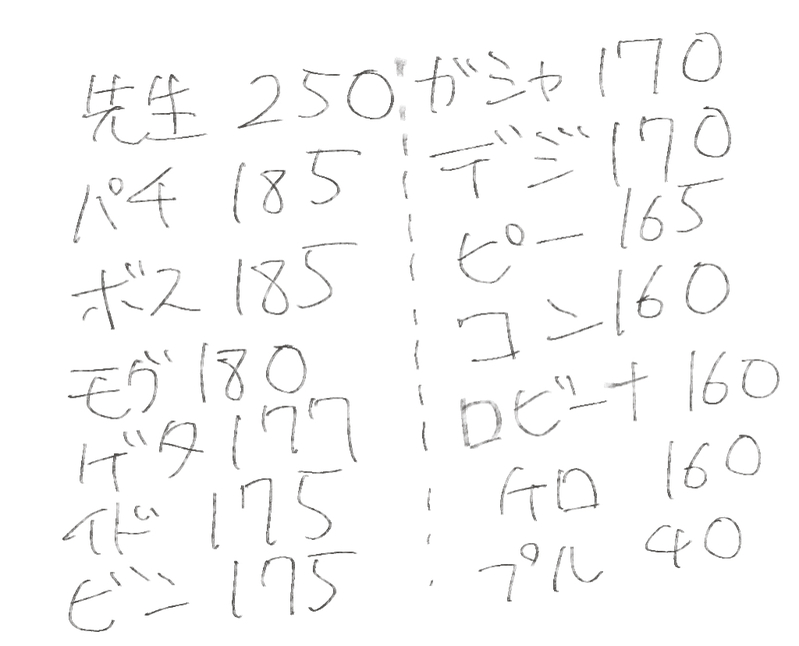 先生 250
パチ 185
ボス 185
モグ 180
ゲタ 177
イド 175
ビン 175
ガシャ 170
デジ 170
ピー 165
コン 160
ロビーナ 160
ケロ 160
プル 40